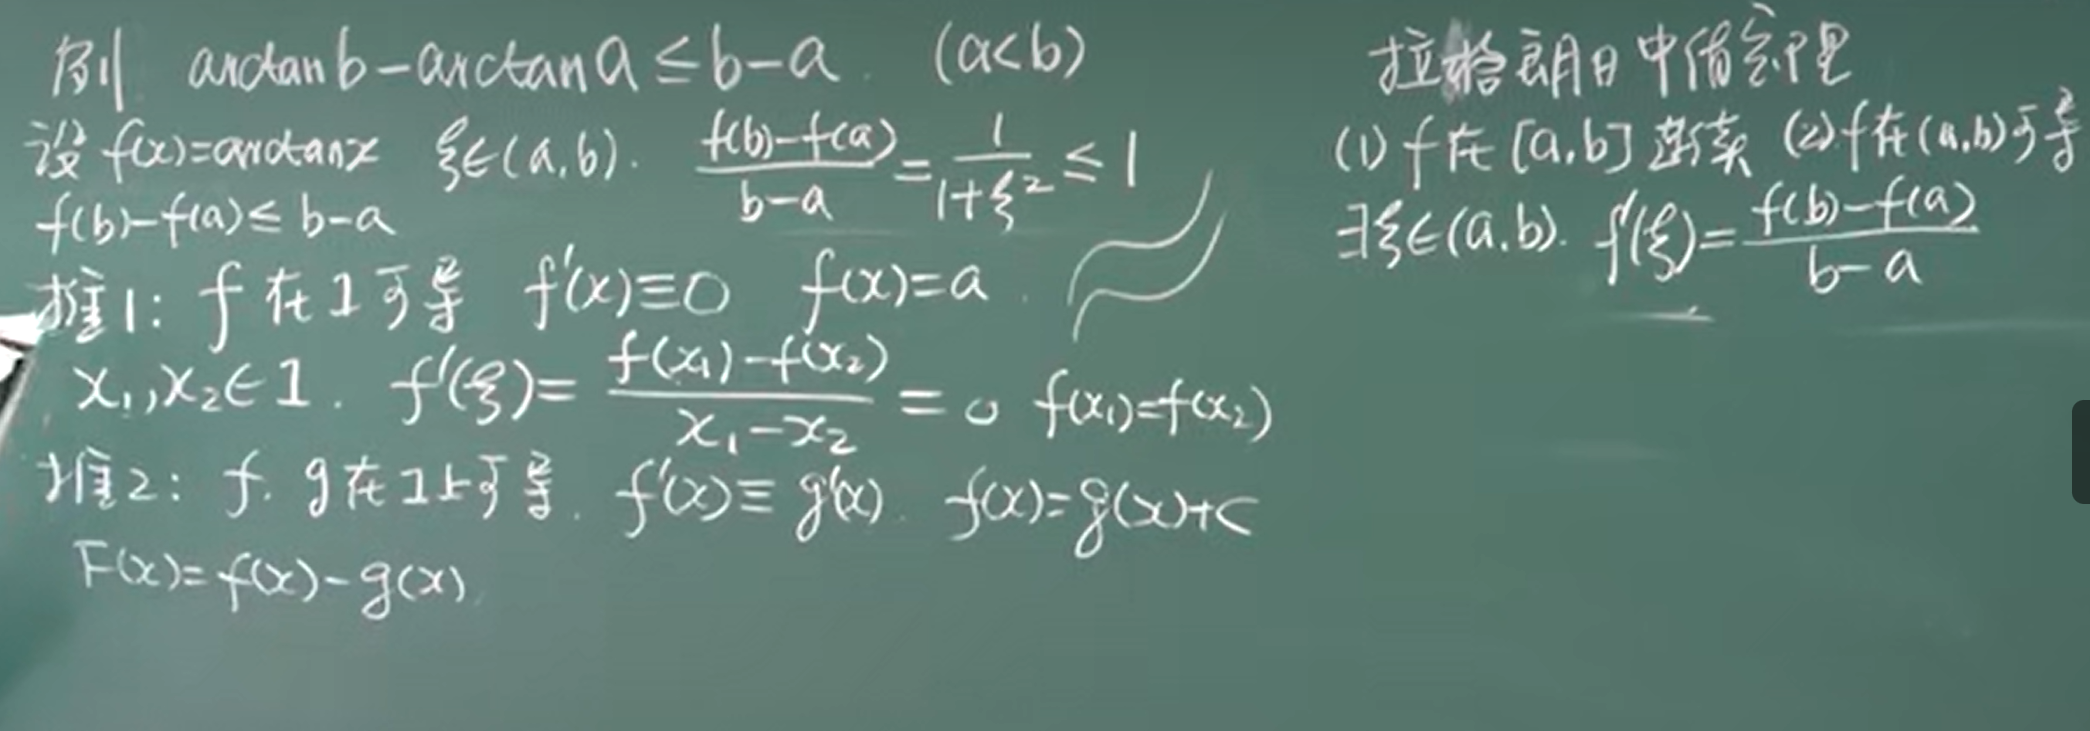 例 arctan b - arctan a ≤ b - a. (a<b)
设 f(x)=arctanx ξ∈(a,b). \frac{f(b)-f(a)}{b-a} = \frac{1}{1+ξ^2} ≤ 1
f(b)-f(a)≤ b-a
推1: f 在 I 可导 f'(x)≡0 f(x)=a.
x_1,x_2∈I. f'(ξ)= \frac{f(x_1)-f(x_2)}{x_1-x_2} = 0 f(x_1)=f(x_2)
推2: f. g在I上可导. f'(x)≡ g'(x). f(x)=g(x)+c
F(x)=f(x)-g(x).
拉格朗日中值定理
(1) f 在 [a,b] 连续 (2) f 在 (a,b) 可导
∃ξ∈(a,b). f'(ξ)= \frac{f(b)-f(a)}{b-a}